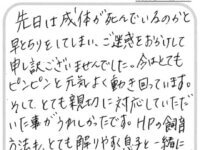 先日は成体が死んでいるのかと
早とちりをしてしまい、ご迷惑をおかけして
申し訳ございませんでした。今はとても
ピンピンと元気よく動き回っています。
そして、とても親切に対応していただ
いた事がうれしかったです。HPの飼育
方法も、とても解りやすく息子と一緒に